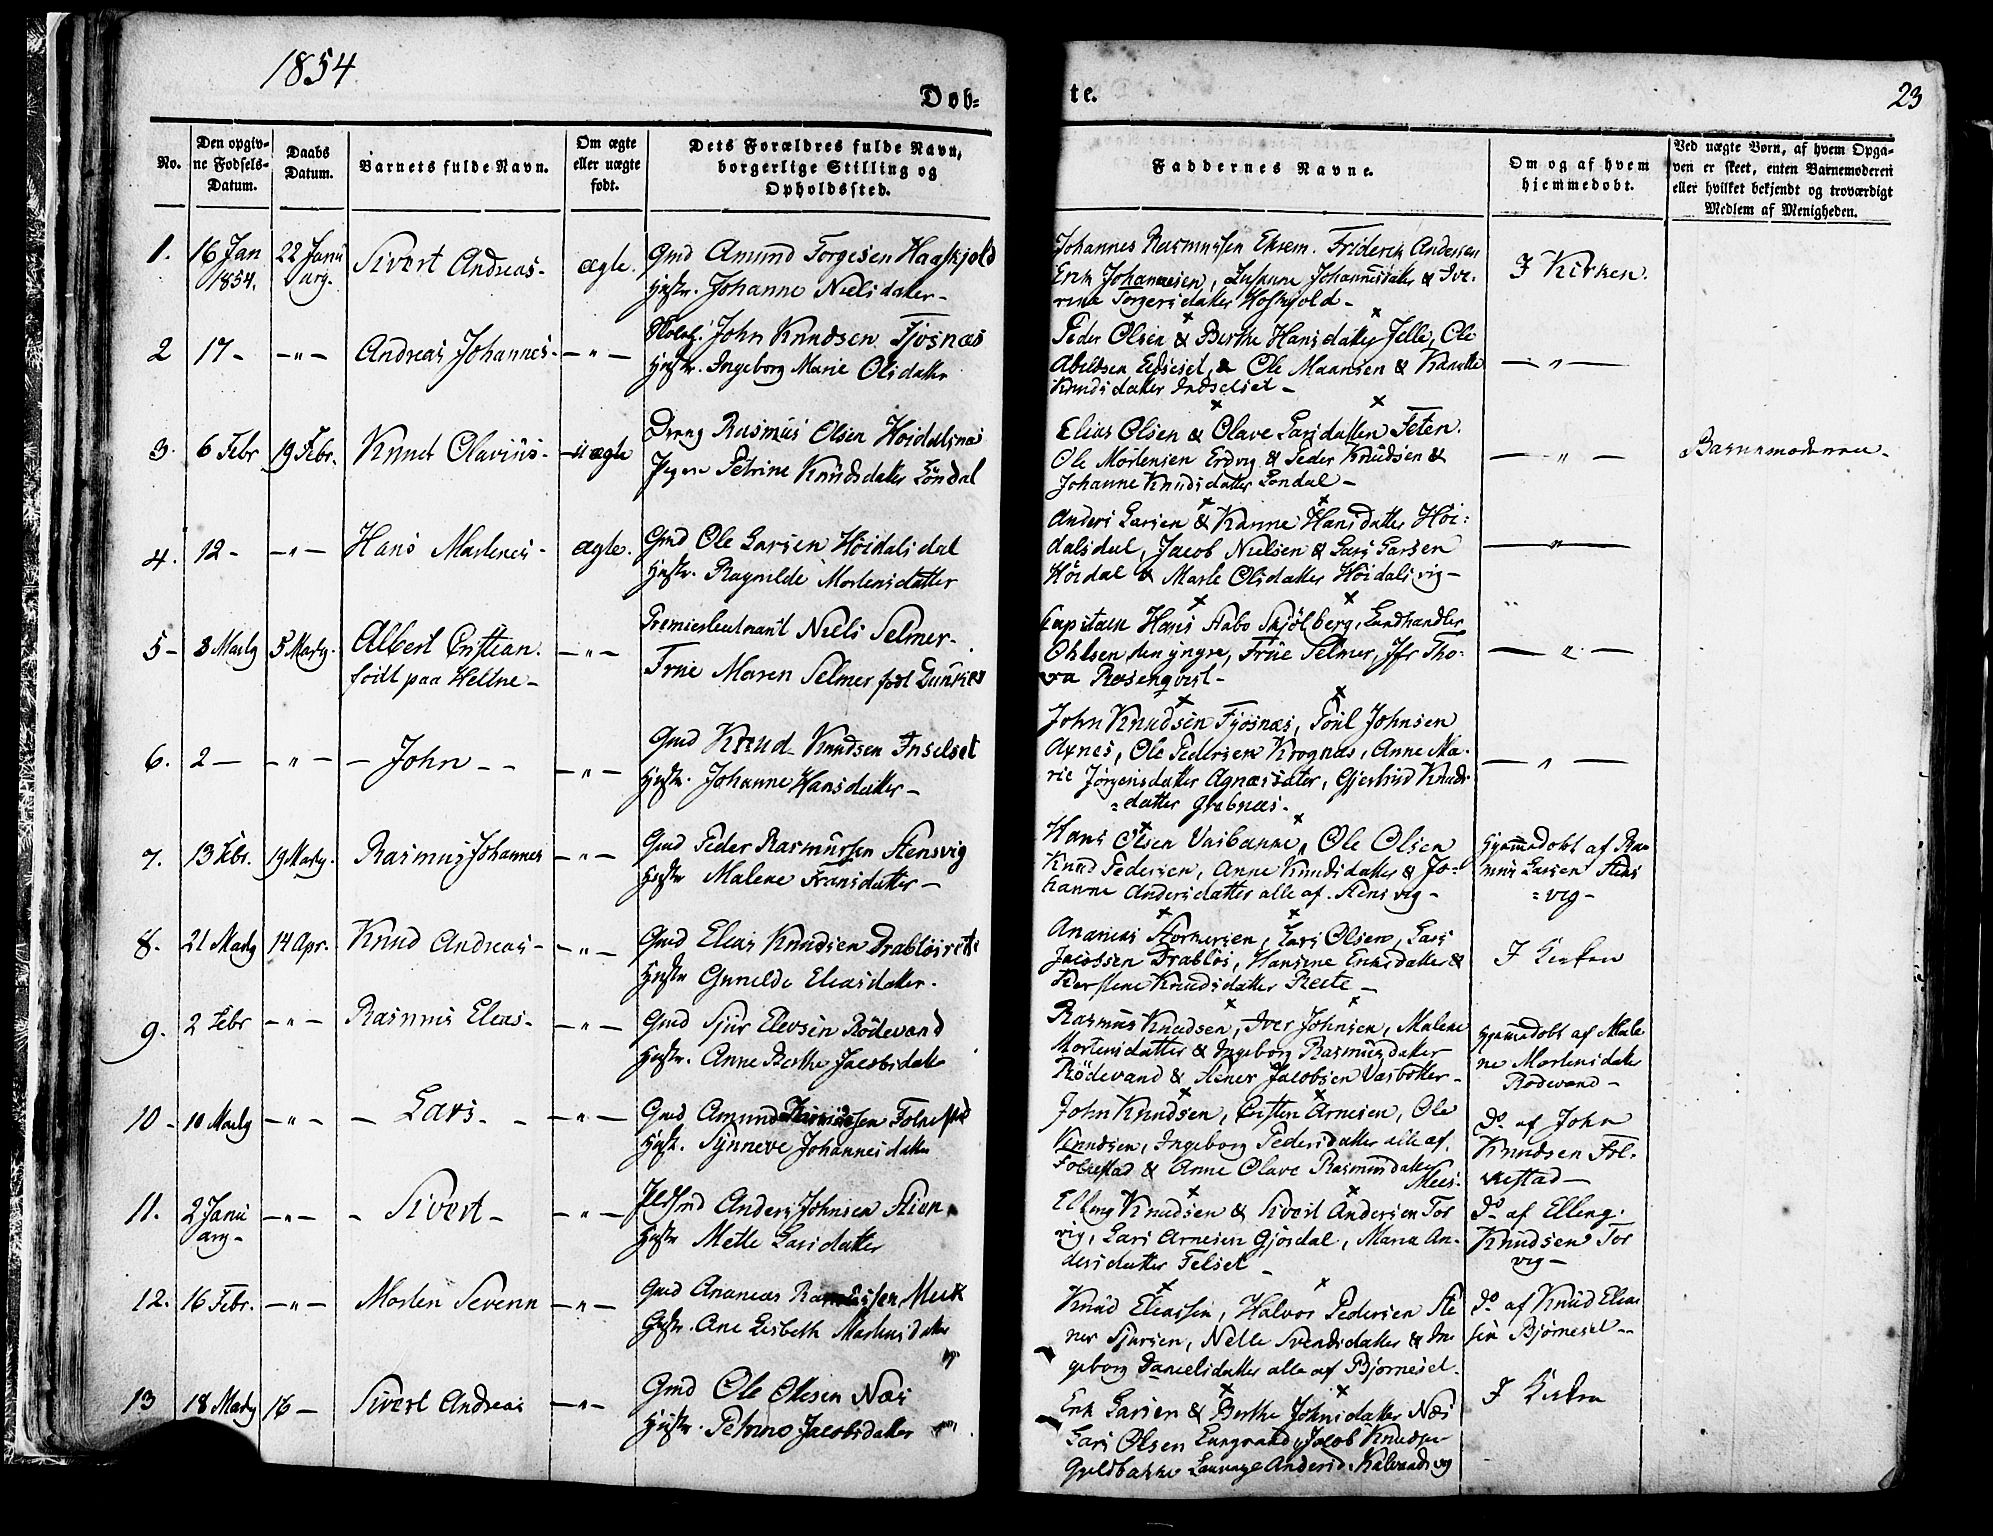 1854
Døb-
te.
23
No.
Den opgiv-
ne Fødsels-
Datum.
Daabs
Datum.
Barnets fulde Navn.
Om ægte
eller uægte
født.
Dets Forældres fulde Navn,
borgerlige Stilling og
Opholdssted.
Faddernes Navne.
Om og af hvem
hjemmedøbt.
Ved uægte Børn, af hvem Opga-
ven er skeet, enten Barnemoderen
eller hvilket bekjendt og troværdigt
Medlem af Menigheden.
1. 16 Jan 22 Janu Sivert Andreas- ægte. Gmd Amund Torgersen Haaskjold
1854. arg. Hustr. Johanne Nielsdatter-
Johannes Rasmussen Ekrem. Friderik Andersen
Erik Johannesen, Susanne Johannesdatter & Ive-
rine Torgersdatter Hoskjold-
I Kirken.
2 17- -"- Andreas Johannes- -"- John Knudsen Fyosnæs
Hustr. Ingeborg Marie Olsdatter
Peder Olsen & Berthe Hansdatter Jelle, Ole
Abeldsen Endseset, & Ole Maansen & Kanutte
Knudsdatter Indselset-
-"-
3. 6 Febr 19 Febr. Knut Olavius- uægte Dreng Rasmus Olsen Høidalsnæs
Pigen Petrine Knudsdatter Løndal
Elias Olsen & Olave Larsdatter Feten.
Ole Mortensen Erdvig & Peder Knudsen &
Johanne Knudsdatter Løndal-
-"-
Barnemoderen-
4. 12- -"- Hans Martines- ægte. Gmd Ole Larsen Høidalsdal
Hustr. Ragnilde Mortensdatter
Anders Larsen & Hanne Hansdatter Høi-
dalsdal, Jacob Nielsen & Lars Larsen
Høidal & Marte Olsdatter Høidalsvig-
-"-
5- 3 Marts 5 Marts. Albert Cristian. -"- Premierleutnant Niels Selmer.
født paa Heltne- Frue Maren Selmer født Dunker
Capitain Hans Aabo Skjølberg, Landhandler
Ohlsen den yngre, Frue Selmer, Jfr Tho-
ra Rosenqvist-
-"-
6. 2- -"- -John- -"- Gmd Knud Knudsen Inselset
Hustr. Johanne Hansdatter-
John Knudsen Fyosnæs, Poul Johnsen
Axnes, Ole Pedersen Krognæs, Anne Ma-
rie Jørgensdatter Agnæssæter, Gjertrud Knuds-
=datter Grebnæs.
-"-
7. 13 Febr. 19 Marts. Rasmus Johannes -"- Gmd Peder Rasmussen Stensvig
Hustr Malene Fransdatter-
Hans Olsen Vasbanne, Ole Olsen
Knud Pedersen, Anne Knudsdatter & Jo-
hanne Andersdatter alle af Stensvig-
Hjemmedøbt af Ras-
mus Larsen Stens
=vig-
8. 21 Marts 14 Apr. Knud Andreas- -"- Gmd Elias Knudsen Drabløsreite
Hustr Gunilde Eliasdatter.
Ananias Størkersen, Lars Olsen, Lars
Jacobsen Drabløs, Hansine Eriksdatter &
Karstine Knudsdatter Reite-
I Kirken
9. 2 Febr -"- Rasmus Elias- -"- Gmd Sjur Eliesen Rødevand
Hustr. Anne Berthe Jacobsdatter
Rasmus Knudsen, Iver Johnsen, Malene
Mortensdatter & Ingeborg Rasmusdatter
Rødevand & Stener Jacobsen Vasbotten-
Hjemmedøbt af Male
ne Mortensdatter
Rødevand-
10- 10 Marts -"- -Lars- -"- Gmd Amund Folnestad
Hustr. Synneve Johannesdatter
John Knudsen, Cristen Arnesen, Ole
Knudsen, Ingeborg Pedersdatter alle af
Folnestad & Anne Olave Rasmusdatter
Mees.
Do af John
Knudsen Fol-
nestad-
11. 2 Janu -"- -Sivert- -"- Anders Johnsen Stion
arg- Hustr Mette Larsdatter
Elling Knudsen & Sivert Andersen Tor
vig, Lars Arnesen Gjørdal, Marie An-
dersdatter Felset-
Do af Elling
Knudsen Tor
vig-
12. 16 Febr. -"- Morten Severin -"- Gmd Ananias Rasmussen Meek
Hustr. Ane Lisbeth Martinsdatter
Knud Eliassen, Halvor Pedersen Ste
ner Sjursen, Nelle Svendsdatter & In
geborg Danielsdatter alle af Bjørneset.
Do af Knud Elias
sen Bjørneset-
13 18 Marts 16- Sivert Andreas -"- Gmd Ole Olsen Næs
Hustr. Petrine Jacobsdatter
Erik Larsen & Berthe Johnsdatter Næs
Lars Olsen Jacob Knudsen
I Kirken